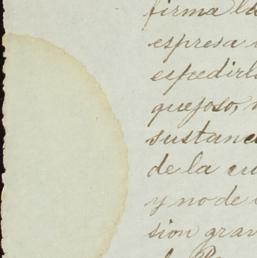 firma la
espresa
espedirl
quejoso,
sustanc
de la cu
y no de
sion gra